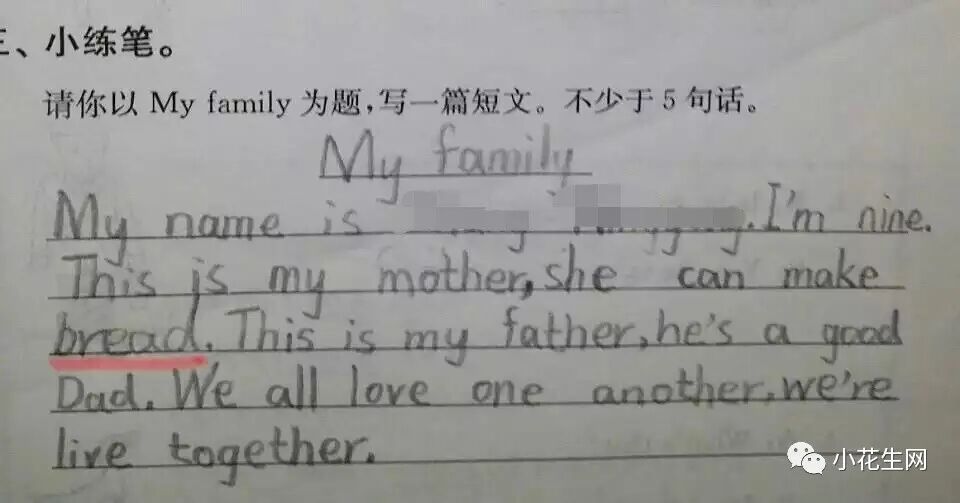 三、小练笔。
请你以 My family 为题,写一篇短文。不少于5句话。
My family
My name is .I'm nine.
This is my mother,she can make
bread. This is my father,he's a good
Dad. We all love one another,we're
live together.
小花生网